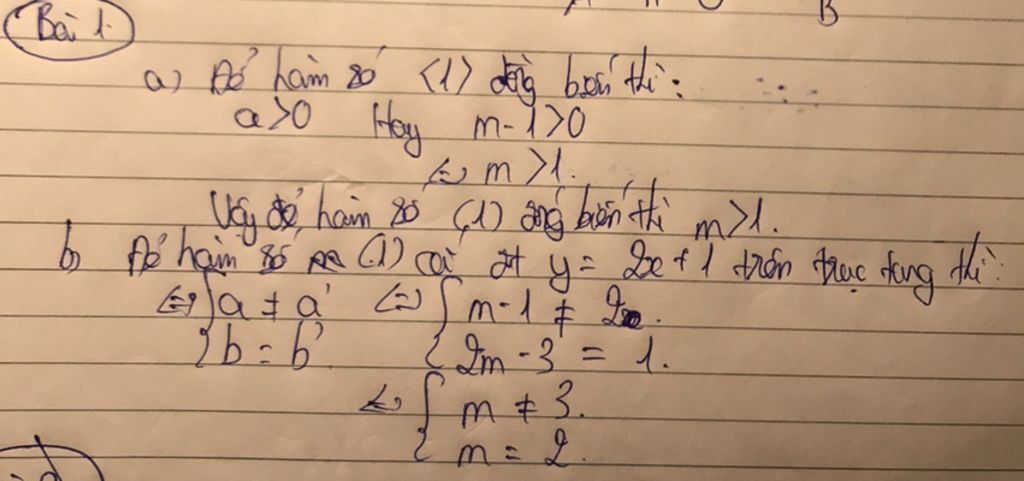 B
Bài 1.
a) Để hàm số (1) đồng biến thì:
a>0 Hay m-1>0
<=> m>1.
Vậy để hàm số (1) đồng biến thì m>1.
b) Để hàm số (1) cắt đt y= 2x+1 trên trục tung thì:
<=> { a ≠ a' <=> { m-1 ≠ 2.
b = b' 2m-3 = 1.
<=> { m ≠ 3.
m = 2.